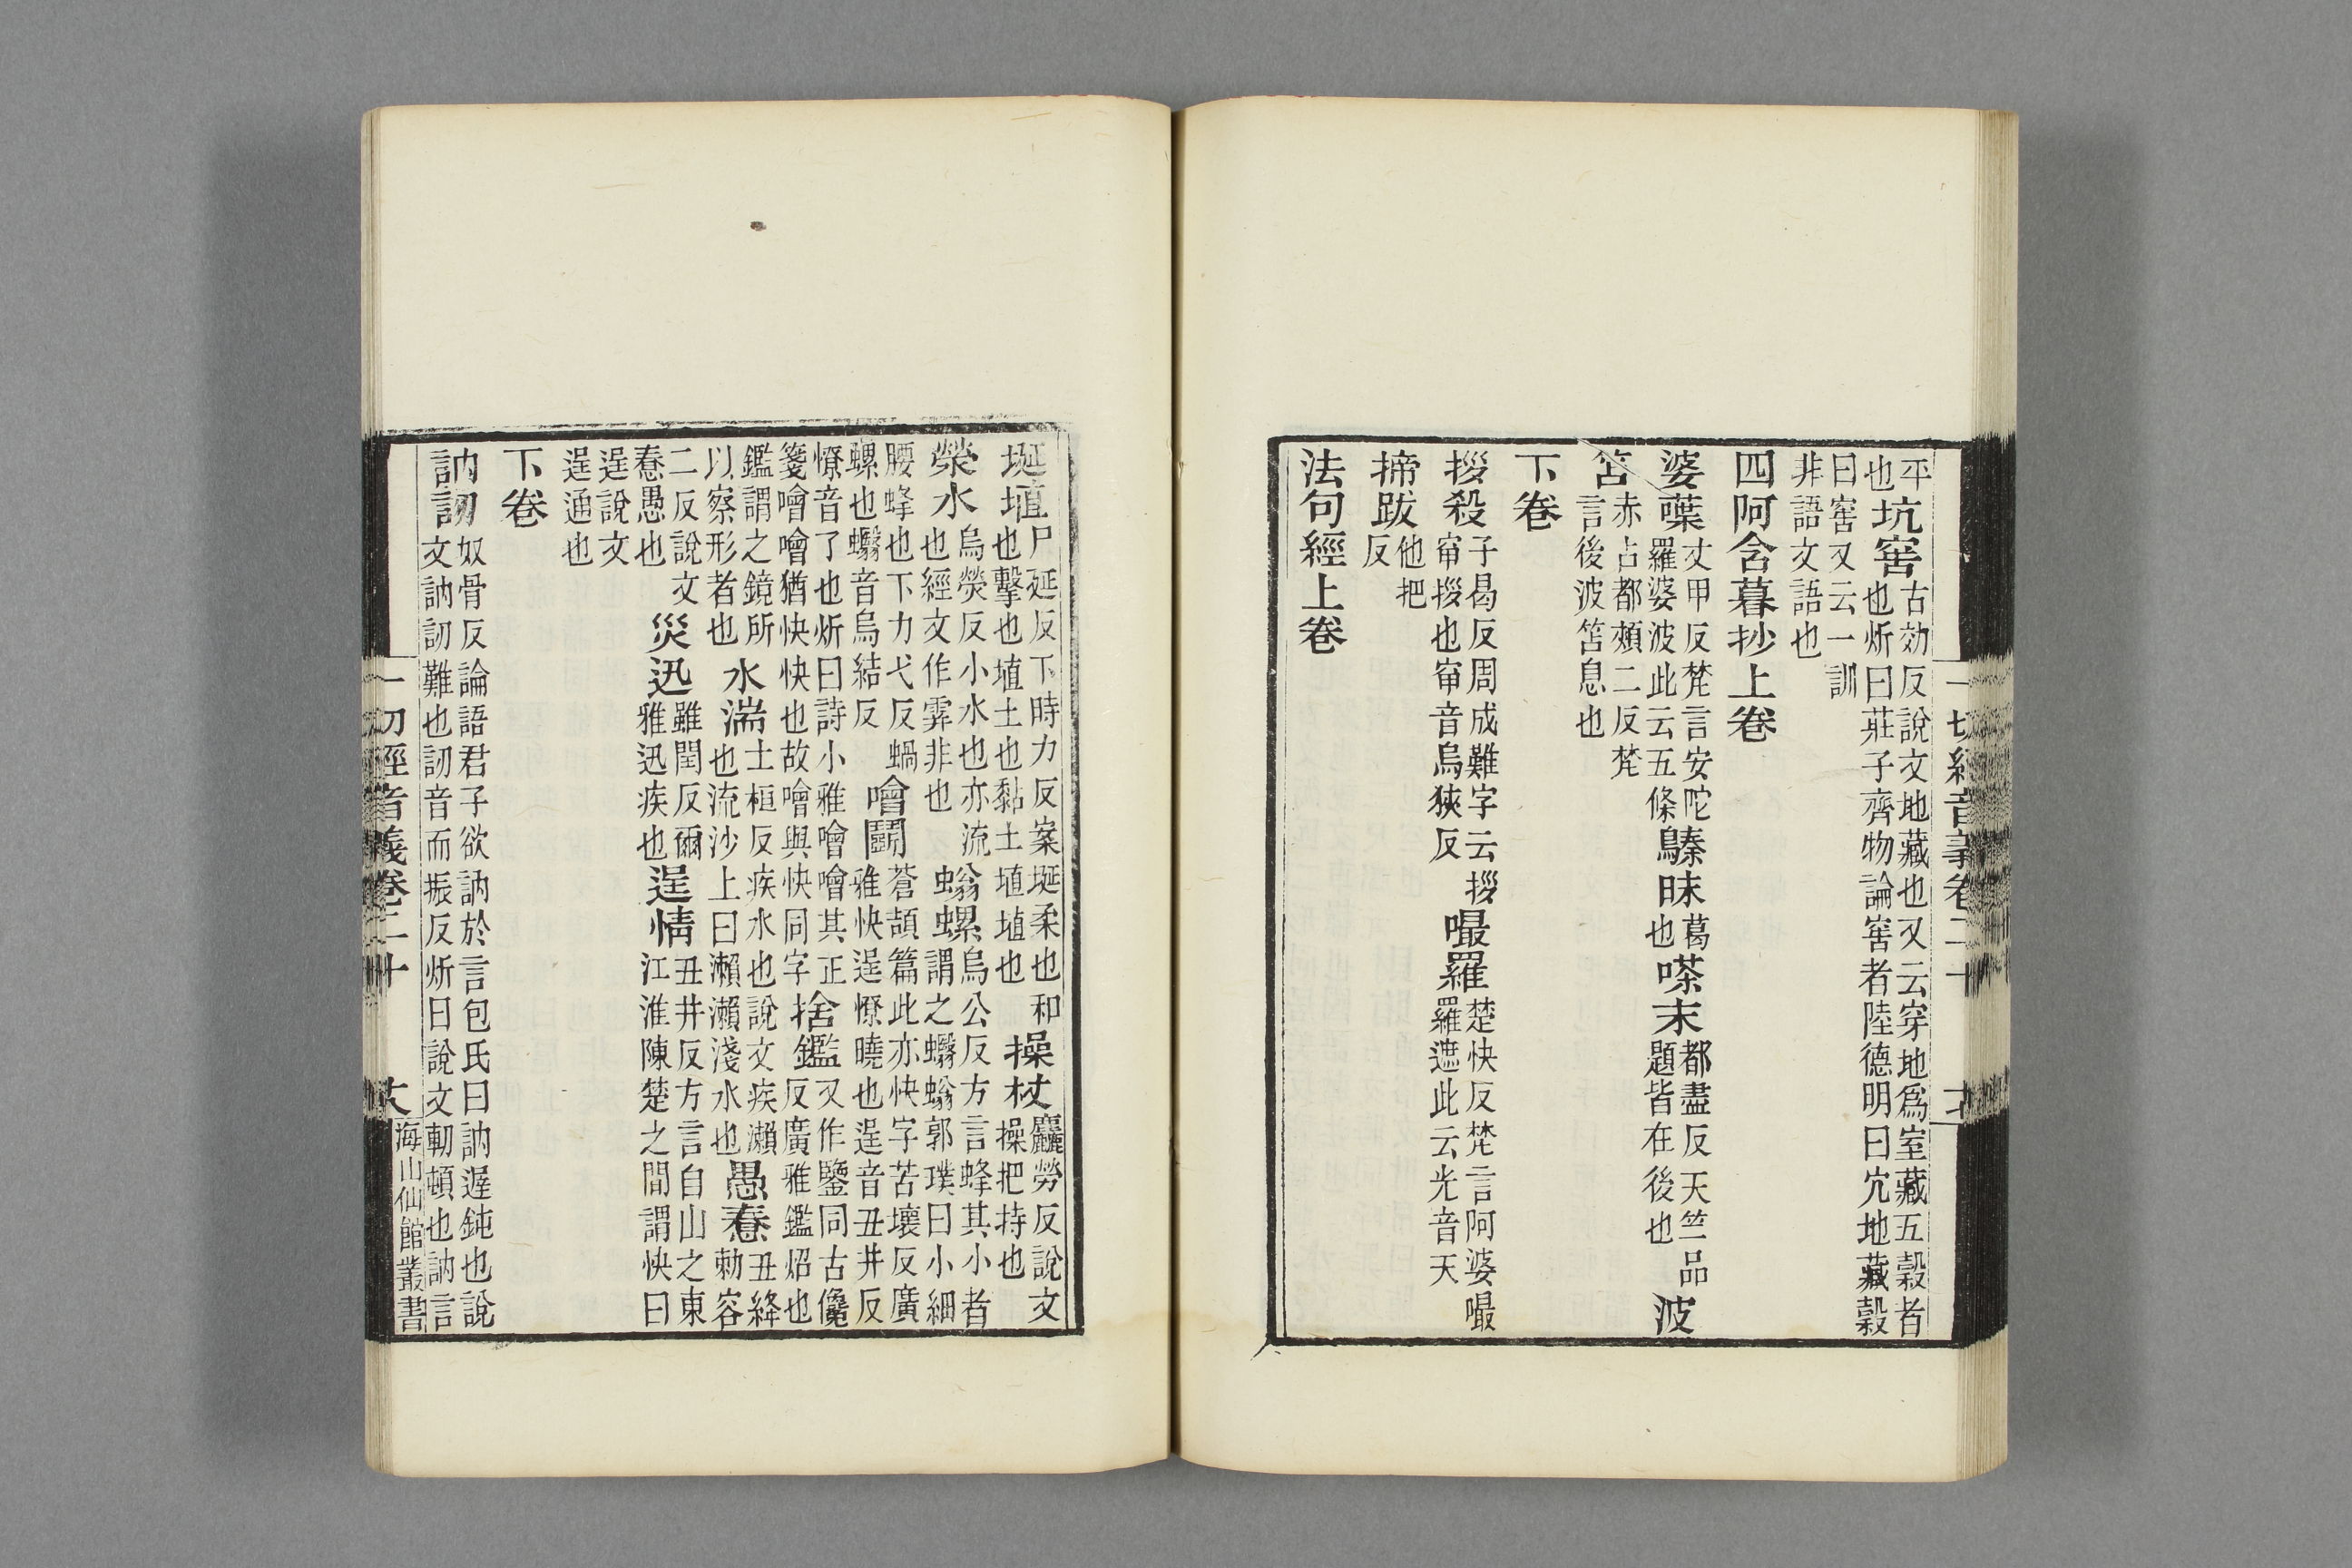 平也坑窖古効反說文地藏也又云穿地爲室藏五穀者也炘曰莊子齊物論窖者陸德明曰宂地藏穀
曰窖又云一訓非語文語也
四阿含暮抄上卷
婆蕐丈甲反梵言安陀羅婆波此云五條鷍昧葛也嗏末都盡反天竺品題皆在後也波
笘赤占都頰二反梵言後波笘息也
下卷
拶殺子曷反周成難字云拶窜拶也窜音烏狹反㘔羅楚快反梵言阿婆㘔羅遮此云光音天
揥跋他把反
法句經上卷
一切經音義卷二十
埏埴尸延反下時力反案埏柔也和也擊也埴土也黏土埴埴也操杖麤勞反說文操把持也
滎水烏熒反小水也亦流也經文作霏非也螉螺烏公反方言蜂其小者謂之蠮螉郭璞曰小細
腰蜂也下力弋反蝸螺也蠮音烏結反噲鬪蒼頡篇此亦快字苦壞反廣雅快逞憭曉也逞音丑井反
憭音了也炘曰詩小雅噲噲其正箋噲噲猶快快也故噲與快同字捨鑑又作鑒同古儳反廣雅鑑炤也
鑑謂之鏡所以察形者也水湍土桓反疾水也說文疾瀨也流沙上曰瀨瀨淺水也愚惷丑絳勅容
二反說文惷愚也災迅雖閏反爾雅迅疾也逞情丑井反方言自山之東江淮陳楚之間謂快曰
逞說文逞通也
下卷
訥訒奴骨反論語君子欲訥於言包氏曰訥遲鈍也說文訥訒難也訒音而振反炘曰說文軔頓也訥言
一切經音義卷二十
海山仙館叢書